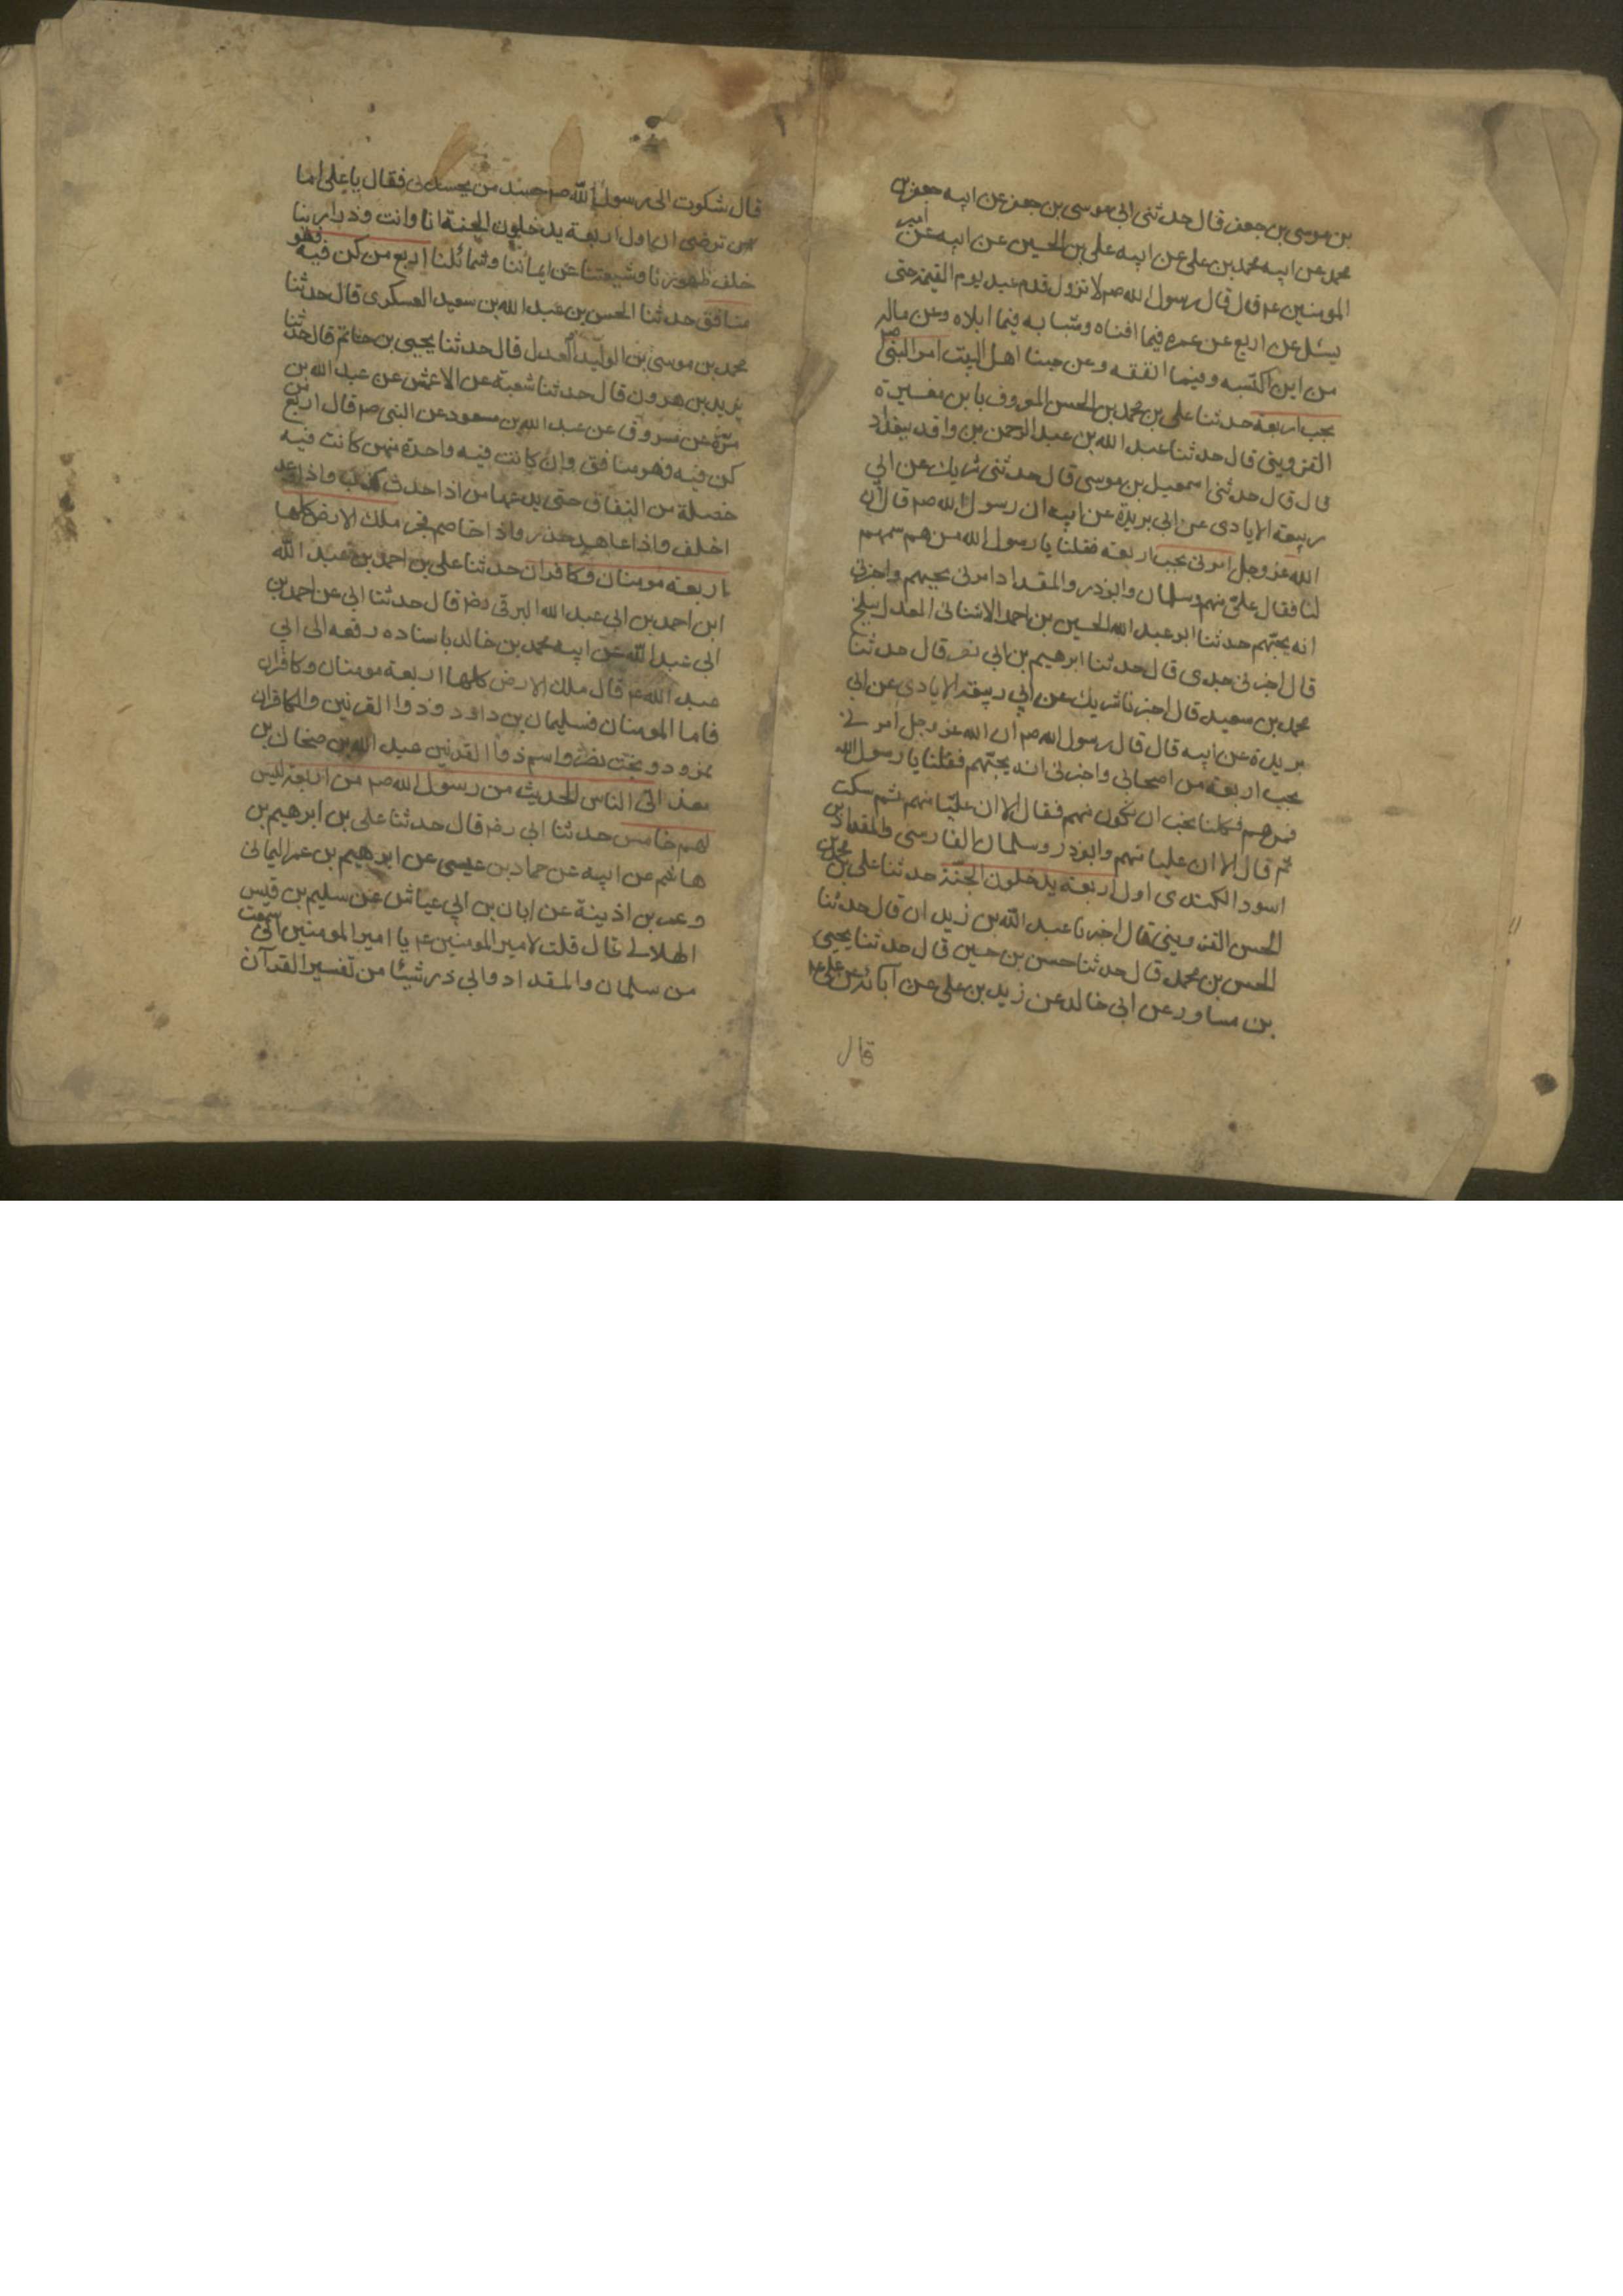 بن موسى بن جعفر قال حدثنى ابى موسى بن جعفر عن ابيه جعفر بن
محمد عن ابيه محمد بن على عن ابيه على بن الحسين عن ابيه عن امير
المومنين ع قال قال رسول الله صم لا تزول قدم عبد يوم القيمة حتى
يسئل عن اربع عن عمره فيما افناه وشبابه فيما ابلاه وعن ماله
من اين اكتسبه وفيما انفقه وعن حبنا اهل البيت امر النبى ص
بحب اربعة حدثنا على بن محمد بن الحسن المعروف بابن مغيرة
القزوينى قال حدثنا عبد الله بن عبد الرحمن بن واقد ببغداد
قال قال حدثنى اسمعيل بن موسى قال حدثنى شريك عن ابى
ربيعة الايادى عن ابى بريدة عن ابيه ان رسول الله صم قال ان
الله عز وجل امرنى بحب اربعة فقلنا يا رسول الله من هم سمهم
لنا فقال على منهم وسلمان وابوذر والمقداد امرنى بحبهم واخبرنى
انه يحبهم حدثنا ابو عبد الله الحسين بن احمد الاشنانى المعدل ببلخ
قال اخبرنى جدى قال حدثنا ابرهيم بن ابى نصر قال حدثنا
محمد بن سعيد قال اخبرنا شريك عن ابى ربيعة الايادى عن ابى
بريدة عن ابيه قال قال رسول الله صم ان الله عز وجل امرنى
بحب اربعة من اصحابى واخبرنى انه يحبهم فقلنا يا رسول الله
فمن هم فكلنا نحب ان نكون منهم فقال الا ان عليا منهم ثم سكت
ثم قال الا ان عليا منهم وابوذر وسلمان الفارسى والمقداد بن
اسود الكندى اول اربعة يدخلون الجنة حدثنا على بن محمد بن
الحسن القزوينى قال اخبرنا عبد الله بن زيدان قال حدثنا
الحسن بن محمد قال حدثنا حسن بن حسين قال حدثنا يحيى
بن مساور عن ابى خالد عن زيد بن على عن آبائه عن على ع
قال
قال شكوت الى رسول الله صم حسد من يحسدنى فقال يا على اما
ترضى ان اول اربعة يدخلون الجنة انا وانت وذرارينا
خلف ظهورنا وشيعتنا عن ايماننا وشمائلنا اربع من كن فيه فهو
منافق حدثنا الحسن بن عبد الله بن سعيد العسكرى قال حدثنا
محمد بن موسى بن الوليد العدل قال حدثنا يحيى بن حاتم قال حدثنا
يزيد بن هرون قال حدثنا شعبة عن الاعمش عن عبد الله بن
مرة عن مسروق عن عبد الله بن مسعود عن النبى صم قال اربع من
كن فيه فهو منافق وان كانت فيه واحدة منهن كانت فيه
خصلة من النفاق حتى يدعها من اذا حدث كذب واذا وعد
اخلف واذا عاهد غدر واذا خاصم فجر ملك الارض كلها
اربعة مومنان وكافران حدثنا على بن احمد بن عبد الله
ابن احمد بن ابى عبد الله البرقى رضه قال حدثنا ابى عن احمد بن
ابى عبد الله عن ابيه محمد بن خالد باسناده رفعه الى ابى
عبد الله ع قال ملك الارض كلها اربعة مومنان وكافران
فاما المومنان فسليمان بن داود وذوا القرنين والكافران
نمرود وبخت نصر واسم ذوا القرنين عبد الله بن ضحاك بن
معد اتى الناس الحديث من رسول الله صم من اربعة ليس
لهم خامس حدثنا ابى رضه قال حدثنا على بن ابرهيم بن
هاشم عن ابيه عن حماد بن عيسى عن ابرهيم بن عمر اليمانى
وعمر بن اذينة عن ابان بن ابى عياش عن سليم بن قيس
الهلالى قال قلت لامير المومنين ع يا امير المومنين انى سمعت
من سلمان والمقداد وابى ذر شيئا من تفسير القرآن